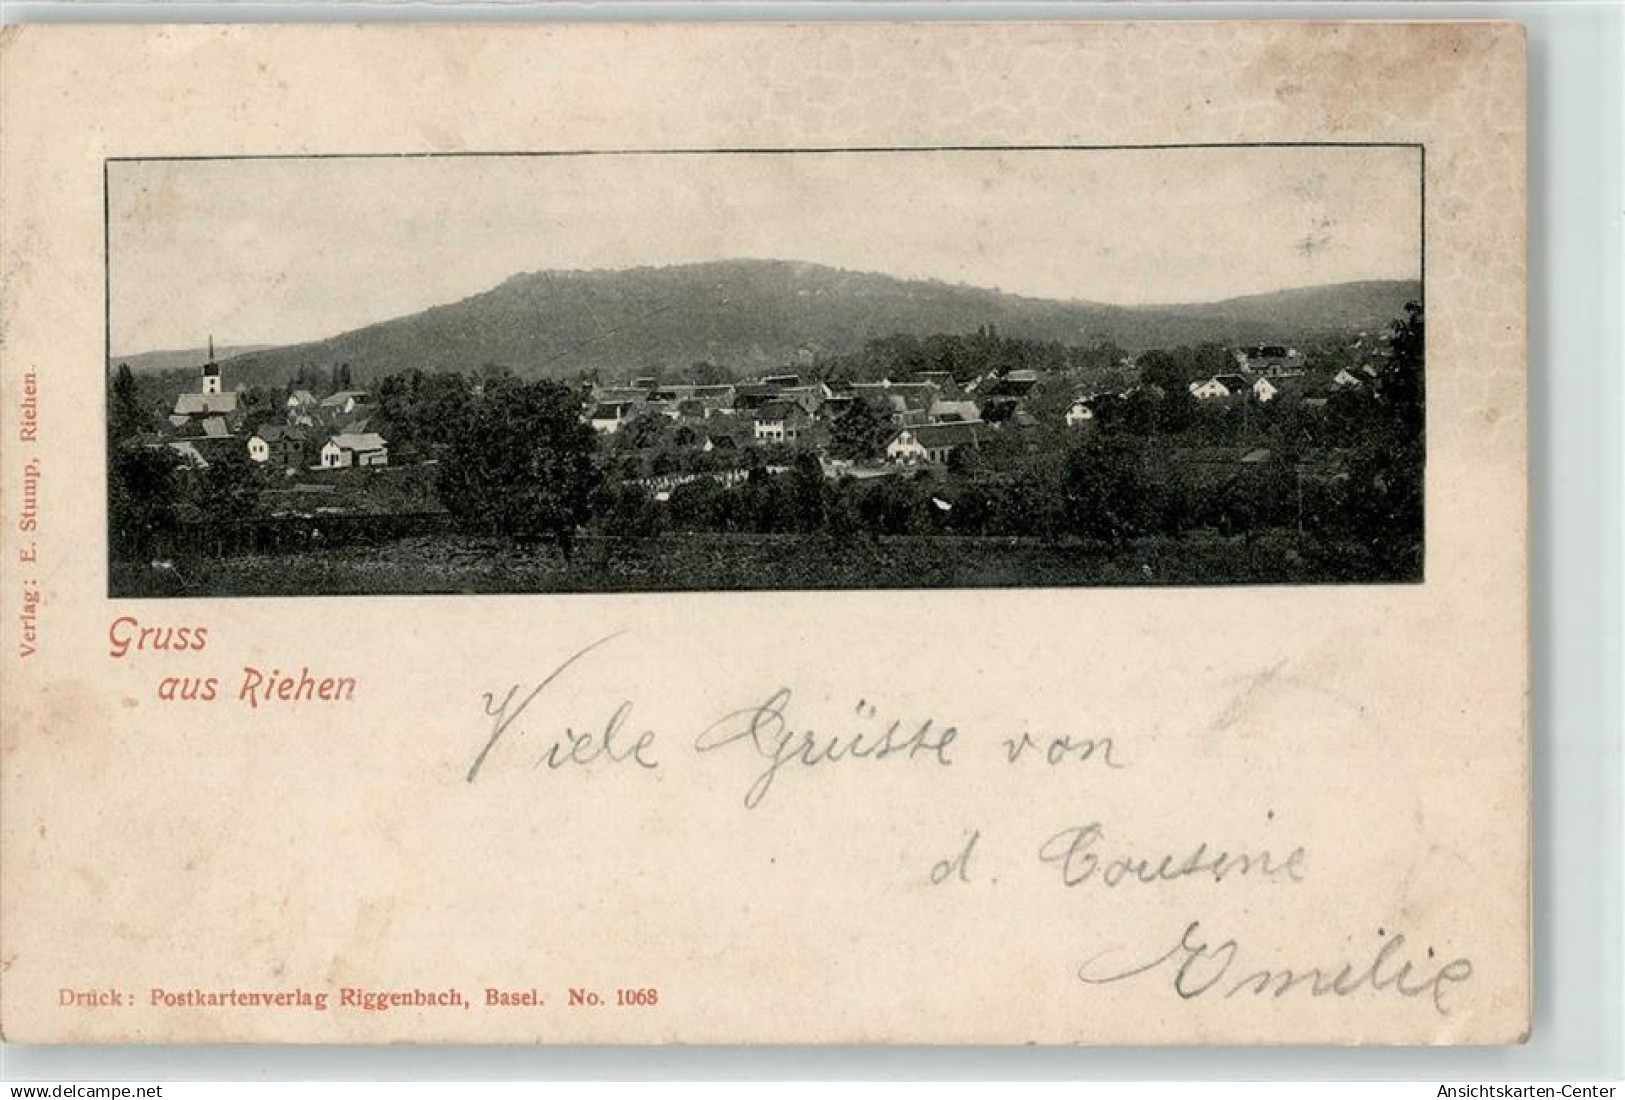 Verlag: E. Stump, Riehen.
Gruss
aus Riehen
Viele Grüsse von
d. Cousine
Emilie
Druck: Postkartenverlag Riggenbach, Basel. No. 1068
www.delcampe.net
Ansichtskarten-Center